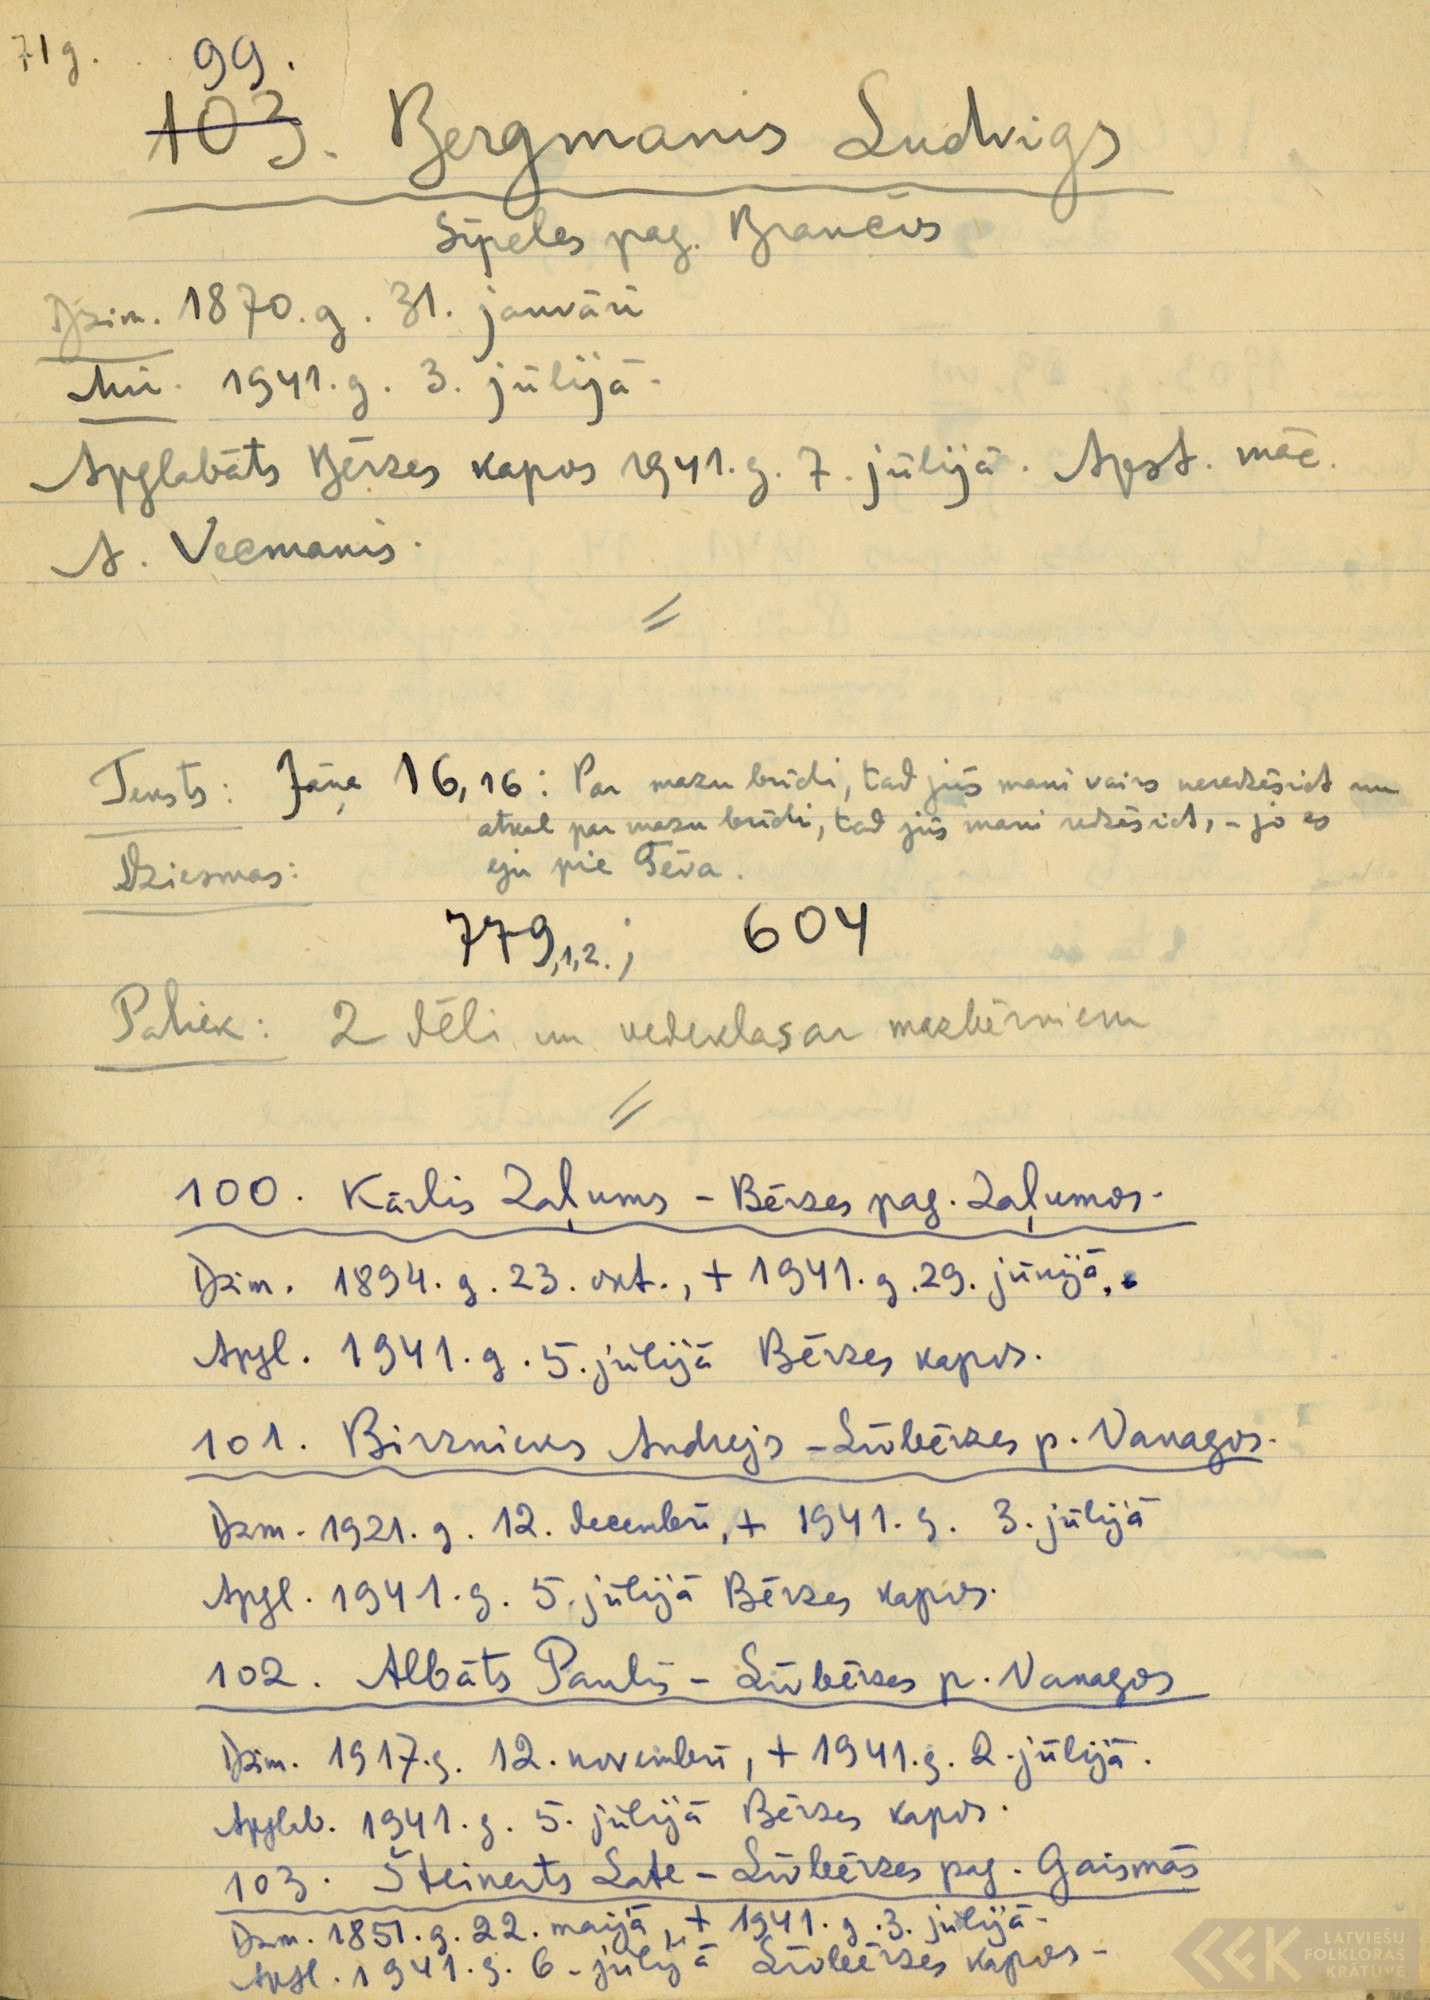 71 g. 99.
103. Bergmanis Ludvigs
Sīpeles pag. Brančos
Dzim. 1870. g. 31. janvārī
Mir. 1941. g. 3. jūlijā.
Apglabāts Bērzes kapos 1941. g. 7. jūlijā. Apst. māc.
A. Vecmanis.
Teksts: Jāņa 16,16: Par mazu brīdi, tad jūs mani vairs neredzēsiet un
atkal par mazu brīdi, tad jūs mani redzēsiet, - jo es
Dziesmas: eju pie Tēva.
779,1,2.; 604
Paliek: 2 dēli un vedeklas ar mazbērniem
100. Kārlis Zaļums - Bērzes pag. Zaļumos.
Dzim. 1894. g. 23. okt., + 1941. g. 29. jūnijā.
Apgl. 1941. g. 5. jūlijā Bērzes kapos.
101. Birznieks Andrejs - Līvbērzes p. Vanagos.
Dzm. 1921. g. 12. decembrī, + 1941. g. 3. jūlijā
Apgl. 1941. g. 5. jūlijā Bērzes kapos.
102. Albāts Pauls - Līvbērzes p. Vanagos
Dzim. 1917. g. 12. novembrī, + 1941. g. 2. jūlijā.
Apglab. 1941. g. 5. jūlijā Bērzes kapos.
103. Šteinerts Late - Līvbērzes pag. Gaismās
Dzm. 1851. g. 22. maijā, + 1941. g. 3. jūlijā.
Apgl. 1941. g. 6. jūlijā Līvbērzes kapos.
LATVIEŠU
FOLKLORAS
KRĀTUVE